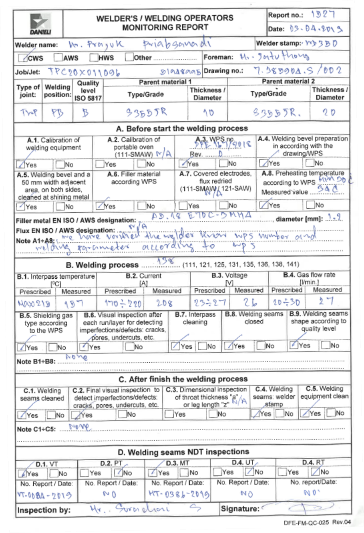 DANIELI
WELDER'S / WELDING OPERATORS
MONITORING REPORT
Report no.: 1327
Date: 03-04-2019
Welder name: Mr. Prayuk
Welder stamp:
CWS AWS HWS Other Foreman: Mr.
Job/Jet: TPC20X011096 Drawing no.:
Type of joint: Welding position: Quality level ISO 5817 Parent material 1 Parent material 2
Type/Grade Thickness / Diameter Type/Grade Thickness / Diameter
PB B S355JR S355JR 20
A. Before start the welding process
A.1. Calibration of welding equipment
A.2. Calibration of portable oven (111-SMAW) N/A
A.3. WPS no.
Rev. 0
A.4. Welding bevel preparation in accordance with the drawing/WPS
Yes No Yes No Yes No
A.5. Welding bevel and a 50 mm width adjacent area, on both sides, cleaned at shining metal
A.6. Filler material according WPS
A.7. Covered electrodes, flux redried (111-SMAW/ 121-SAW) N/A
A.8. Preheating temperature according to WPS
Measured value
Yes No Yes No Yes No Yes No
Filler metal EN ISO / AWS designation: diameter [mm]: 1.2
Flux EN ISO / AWS designation: N/A
Note A1÷A8: welder know WPS number and
welding parameter according to WPS
B. Welding process 138 (111, 121, 125, 131, 135, 136, 138, 141)
B.1. Interpass temperature [ºC] B.2. Current [A] B.3. Voltage [V] B.4. Gas flow rate [l/min.]
Prescribed Measured Prescribed Measured Prescribed Measured Prescribed Measured
170÷220 208 23÷27 26 10÷30 27
B.5. Shielding gas type according to the WPS
B.6. Visual inspection after each run/layer for detecting imperfections/defects: cracks, pores, undercuts, etc.
B.7. Interpass cleaning
B.8. Welding seams closed
B.9. Welding seams shape according to quality level
Yes No Yes No Yes No Yes No Yes No
Note B1÷B8: none
C. After finish the welding process
C.1. Welding seams cleaned
C.2. Final visual inspection to detect imperfections/defects: cracks, pores, undercuts, etc.
C.3. Dimensional inspection of throat thickness "a" or leg length "z" N/A
C.4. Welding seams: welder stamp
C.5. Welding equipment clean
Yes No Yes No Yes No Yes No Yes No
Note C1÷C5: none
D. Welding seams NDT inspections
D.1. VT D.2. PT D.3. MT D.4. UT D.4. RT
Yes No Yes No Yes No Yes No Yes No
No. Report / Date: No. Report / Date: No. Report / Date: No. Report / Date: No. report/Date:
VT-0084-2019 NO MT-0386-2019 NO NO
Inspection by: Mr. Signature:
DFE-FM-QC-025 Rev.04